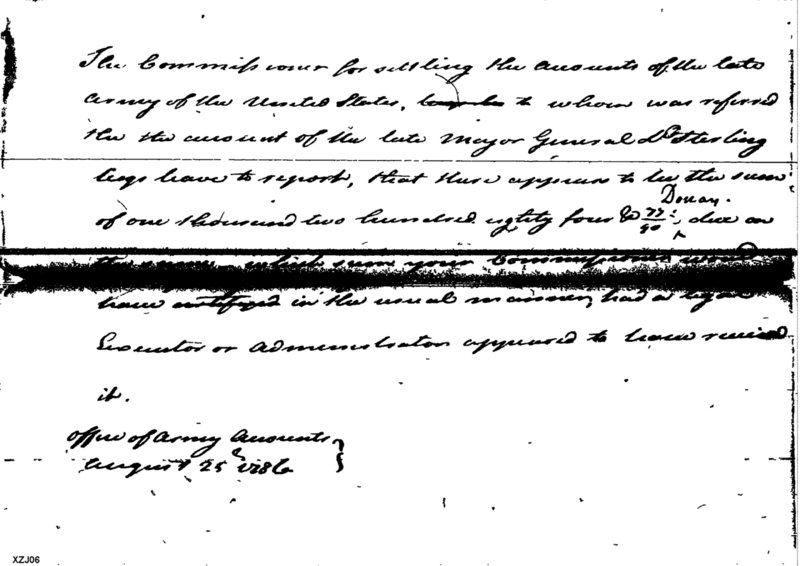 The Commissioner for settling the accounts of the late
Army of the United States, to whom was referred
the the account of the late Major General Ld Sterling
begs leave to report, that there appears to be the sum
of one thousand two hundred eighty four & 77/90 Dollars. due on
the same which sum your Commissioner would
have certified in the usual manner, had a legal
Executor or Administrator appeared to have received
it.
Office of Army Accounts
August 25th 1786
XZJ06